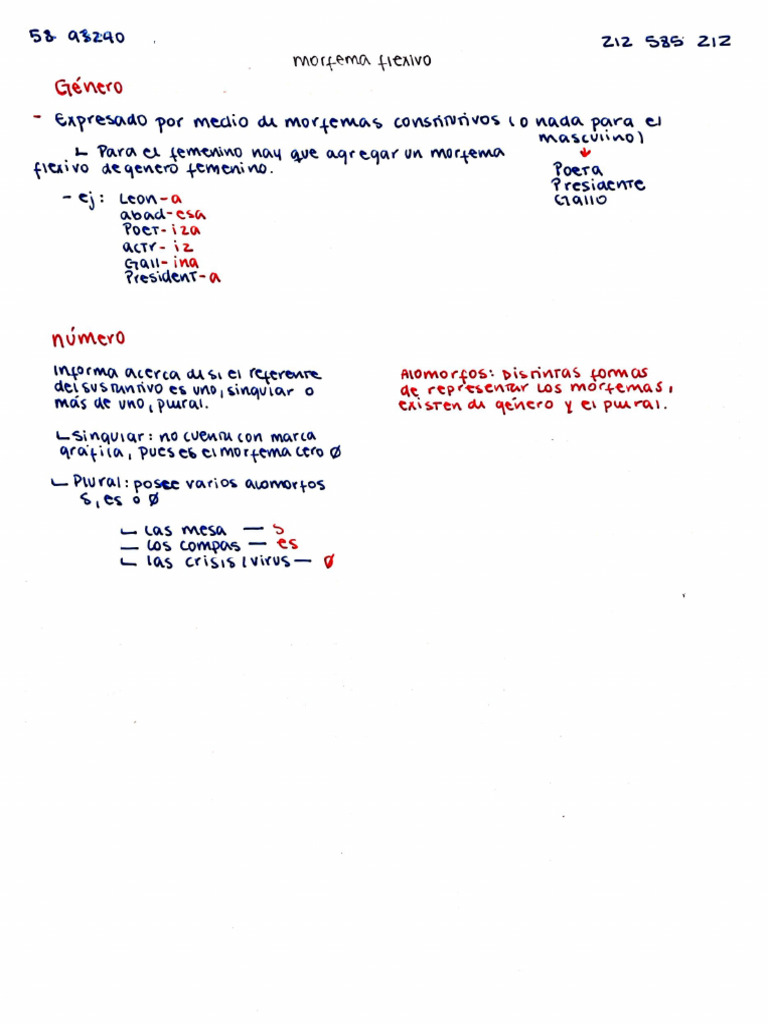 58 98290
212 585 212
morfema flexivo
Género
- Expresado por medio de morfemas constitutivos (o nada para el
masculino)
↳ Para el femenino hay que agregar un morfema
flexivo de genero femenino.
Poeta
Presidente
Gallo
- ej: Leon-a
abad-esa
Poet-iza
actr-iz
Gall-ina
President-a
número
Informa acerca de si el referente
del sustantivo es uno, singular o
más de uno, plural.
↳ Singular: no cuenta con marca
gráfica, pues es el morfema cero Ø
↳ Plural: posee varios alomorfos
s, es o Ø
↳ Las mesa — s
— Los compas — es
↳ las crisis/virus — Ø
Alomorfos: Distintas formas
de representar los morfemas,
existen de género y el plural.